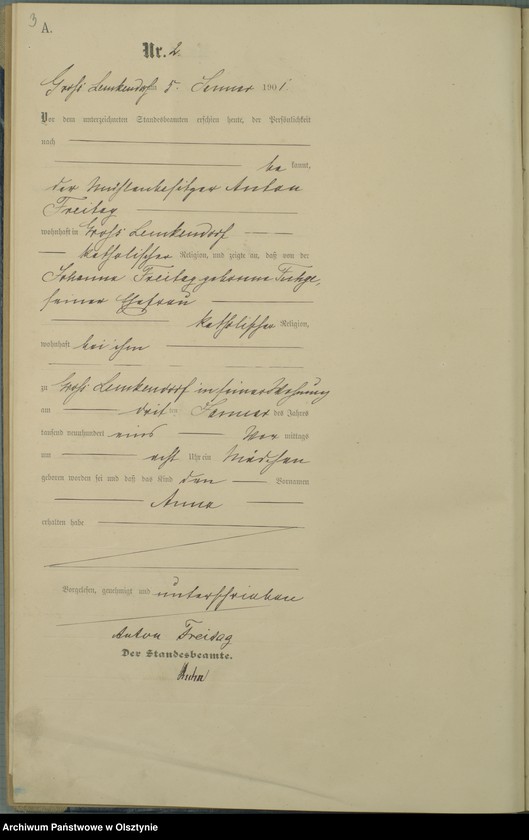 3
A.
Nr. 2.
Groß Lemkendorf am 5. Januar 1901.
Vor dem unterzeichneten Standesbeamten erschien heute, der Persönlichkeit
nach
be kannt,
der Mühlenbesitzer Anton
Freitag
wohnhaft in Groß Lemkendorf
katholischer Religion, und zeigte an, daß von der
Johanna Freitag geborene
seiner Ehefrau
katholischer Religion,
wohnhaft bei ihm
zu Groß Lemkendorf in seiner Wohnung
am drit ten Januar des Jahres
tausend neunhundert eins Vor mittags
um acht Uhr ein Mädchen
geboren worden sei und daß das Kind den Vornamen
Anna
erhalten habe
Vorgelesen, genehmigt und unterschrieben
Anton Freitag
Der Standesbeamte.
Archiwum Państwowe w Olsztynie